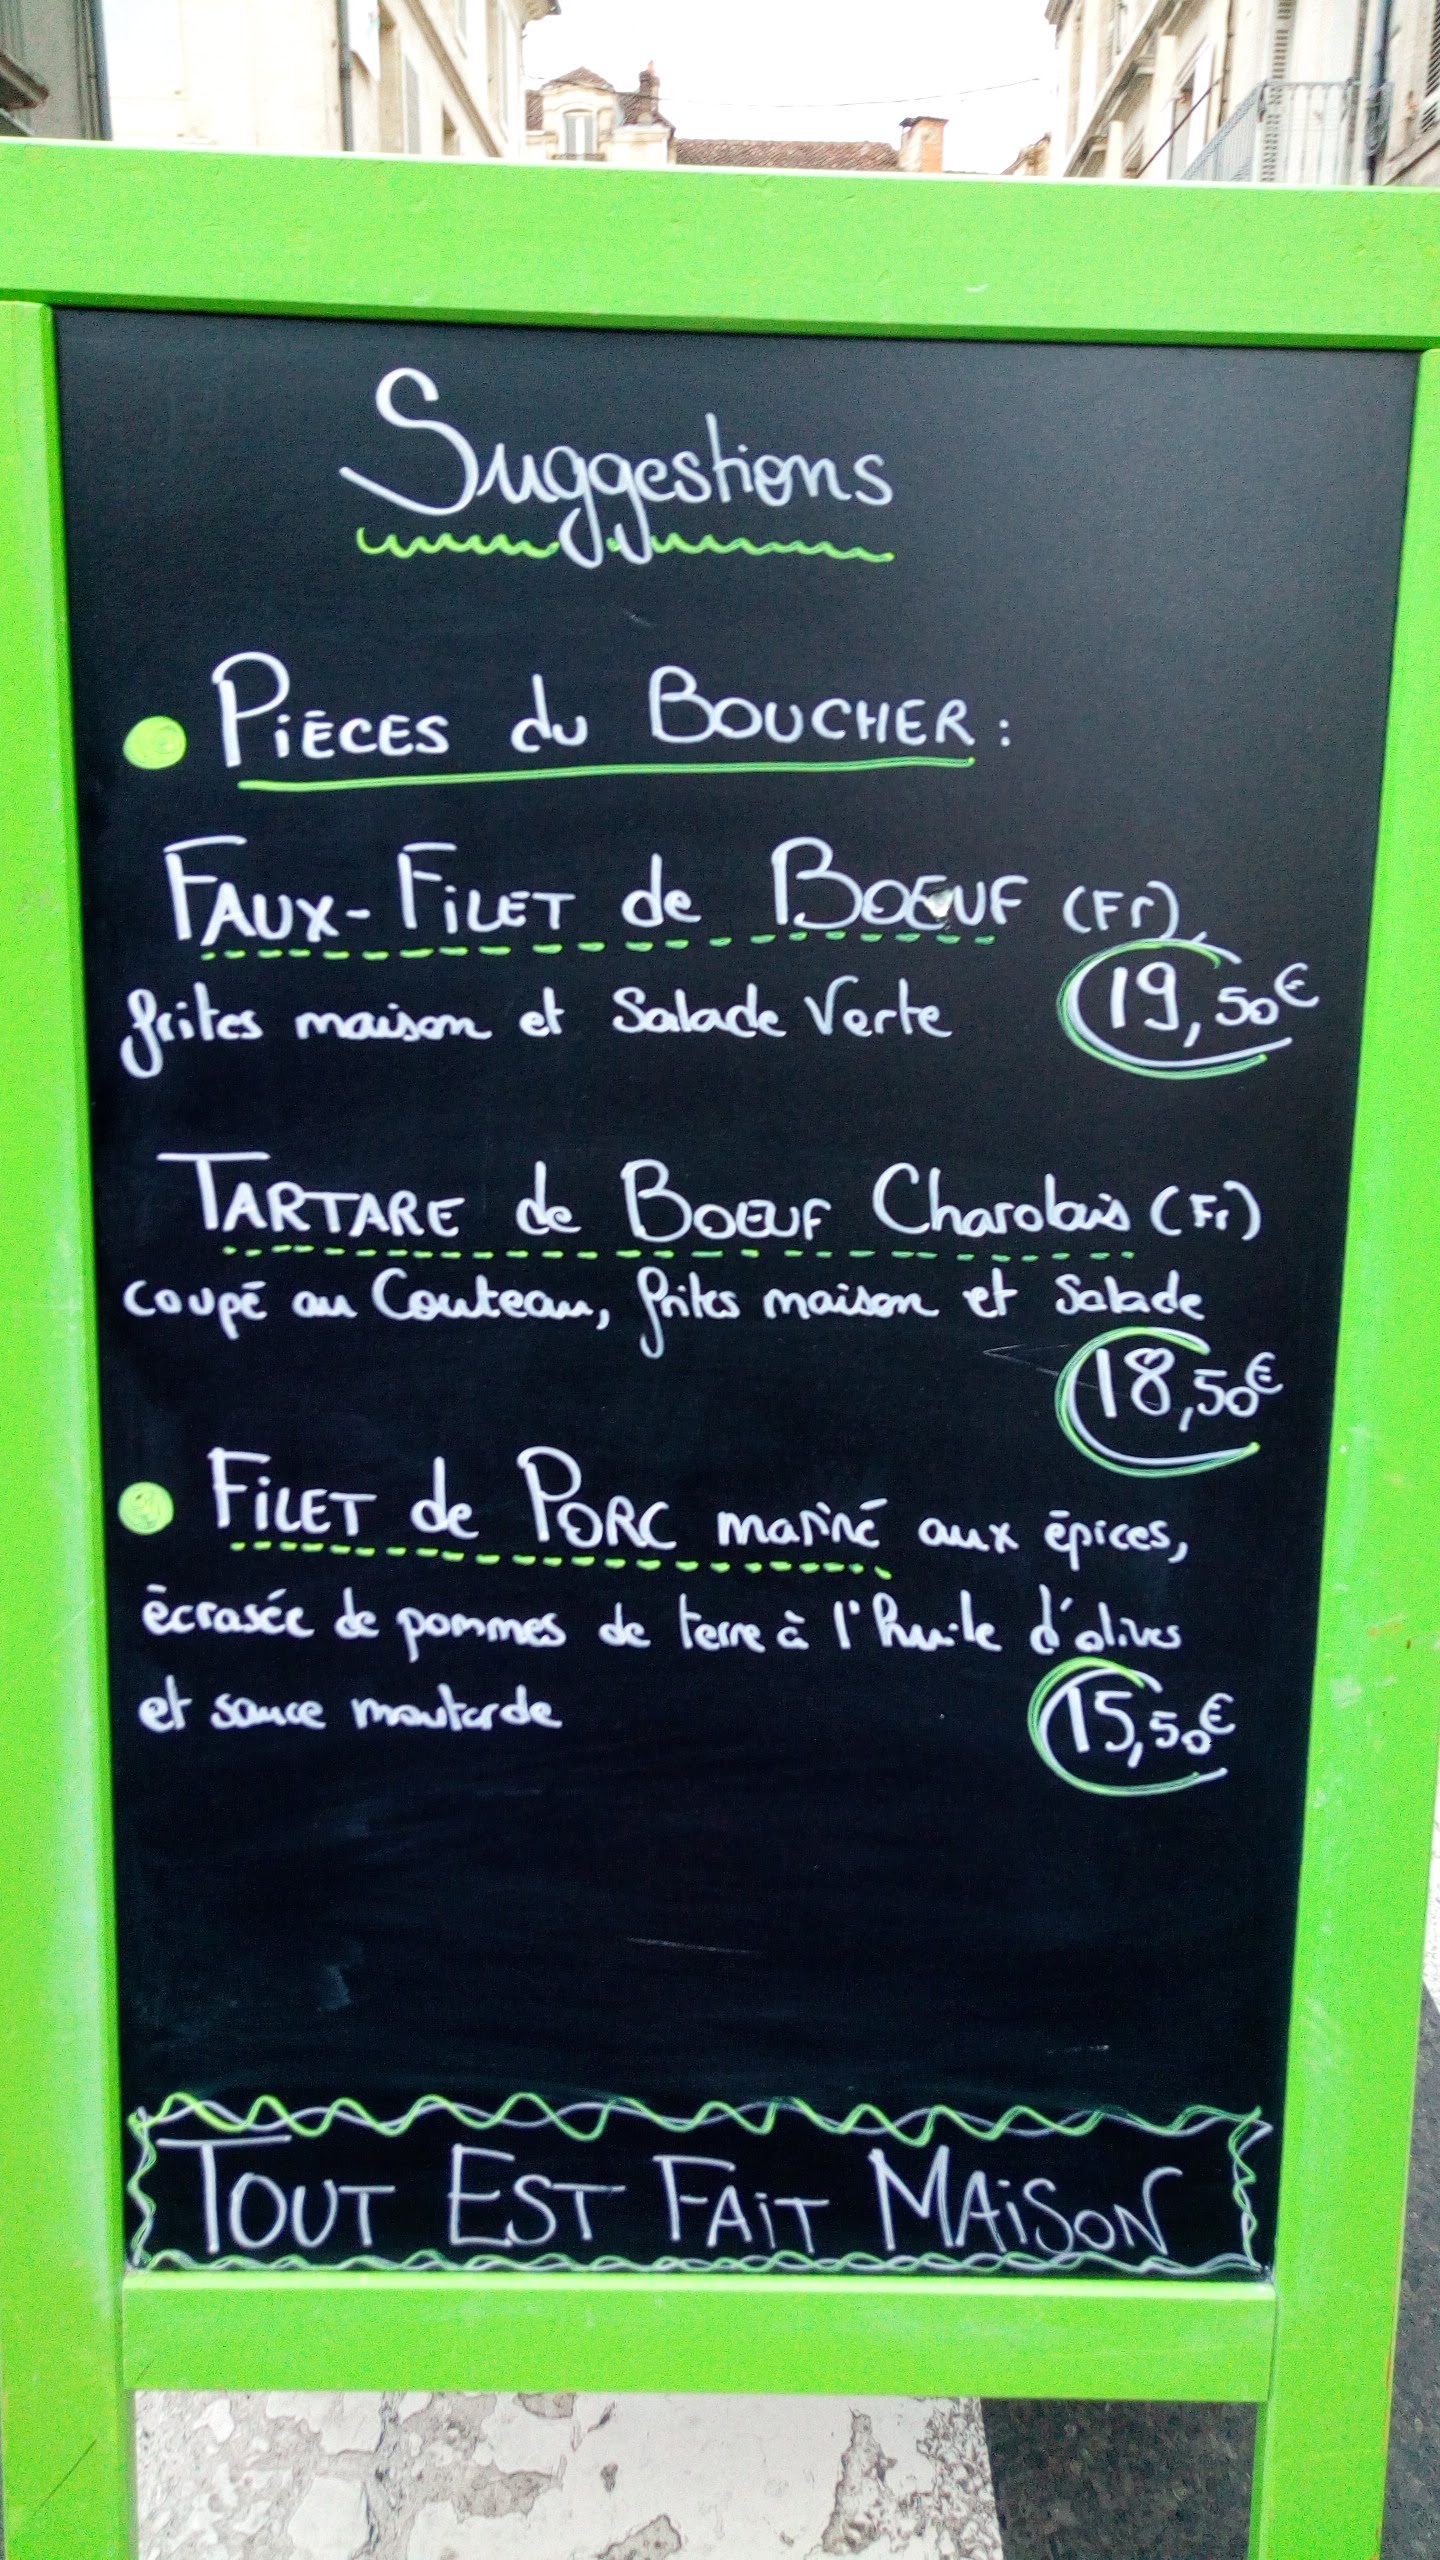 Suggestions
PIÈCES du BOUCHER :
FAUX-FILET de BOEUF (Fr),
frites maison et Salade Verte 19,50€
TARTARE de BOEUF Charolais (Fr)
coupé au Couteau, frites maison et Salade
18,50€
FILET de PORC mariné aux épices,
écrasée de pommes de terre à l'huile d'olives
et sauce moutarde 15,50€
TOUT EST FAIT MAISON